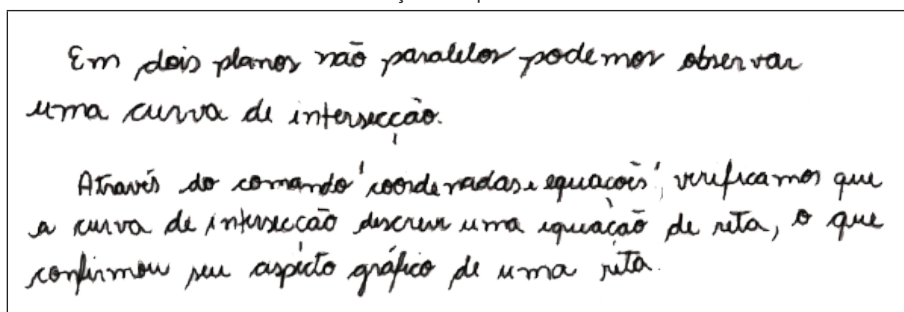 Em dois planos não paralelos podemos observar
uma curva de intersecção.
Através do comando 'coordenadas e equações', verificamos que
a curva de intersecção descreve uma equação de reta, o que
confirmou seu aspecto gráfico de uma reta.